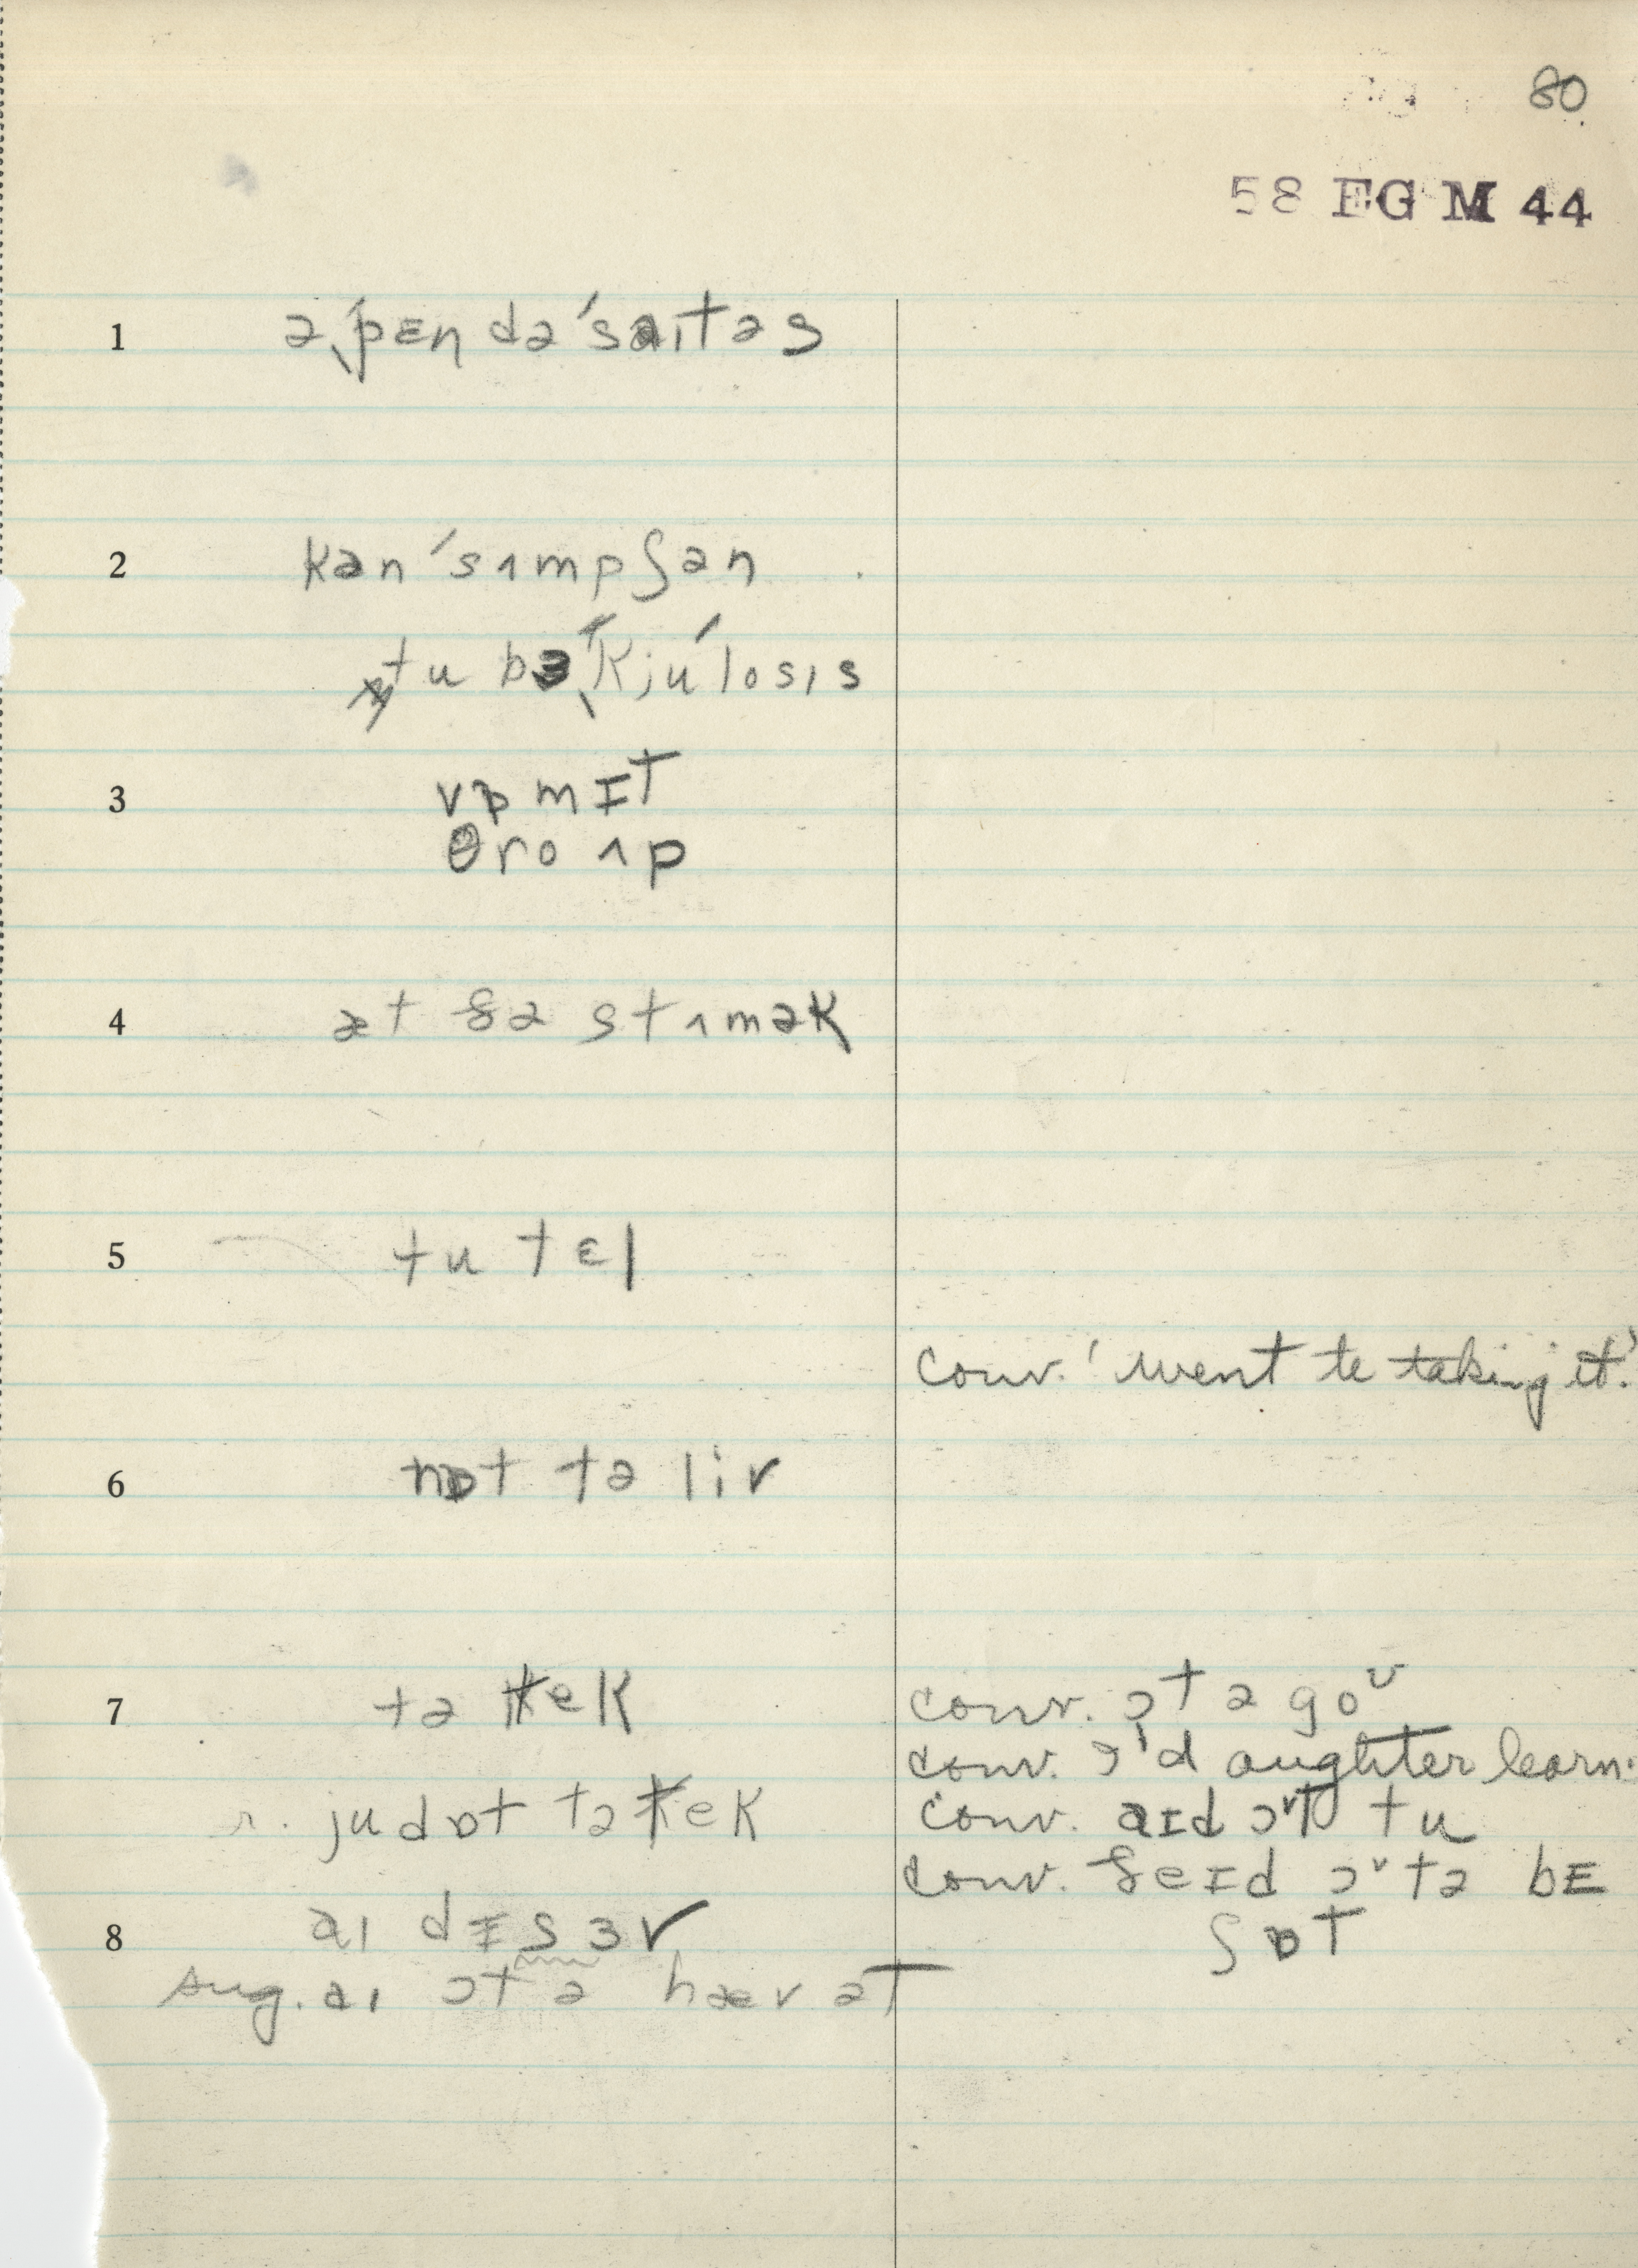 80
58 FG M 44
1 əˌpɛndəˈsaɪtəs
2 kənˈsʌmpʃən
tubɜˌkjúˈlosɪs
3 vɒmɪt
θro ʌp
4 æt ðə stʌmək
5 tu tɛl
conv. 'went to taking it.'
6 nɒt tə liv
7 tə tek
conv. ɔt ə goᶷ
conv. ɔ'd aughter learn
r. ju dɒt tə tek
conv. aɪd ɔᵛt tu
conv. ðeɪd ɔᵛtə bE
ʃɒt
8 aɪ dɪsɜv
sug. aɪ ɔt ə hæv ət